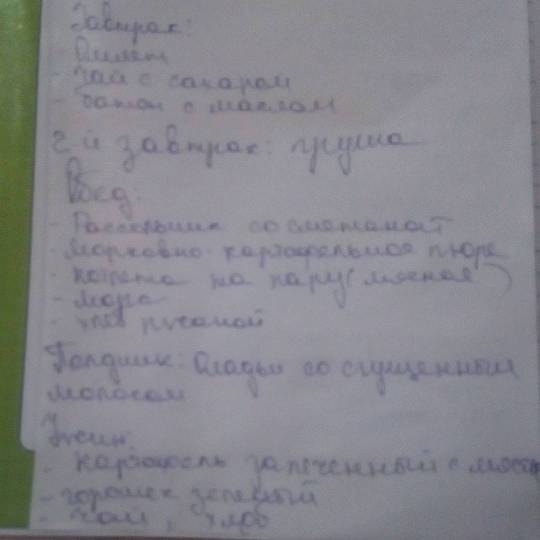 Завтрак:
Омлет
- Чай с сахаром
- батон с маслом
2 й завтрак: груша
Обед:
- Рассольник со сметаной
- морковно-картофельное пюре
- котлета на пару (мясная)
- морс
- хлеб ржаной
Полдник: Оладьи со сгущенным
молоком
Ужин:
- картофель запеченный с мясом
- горошек зеленый
- чай, хлеб